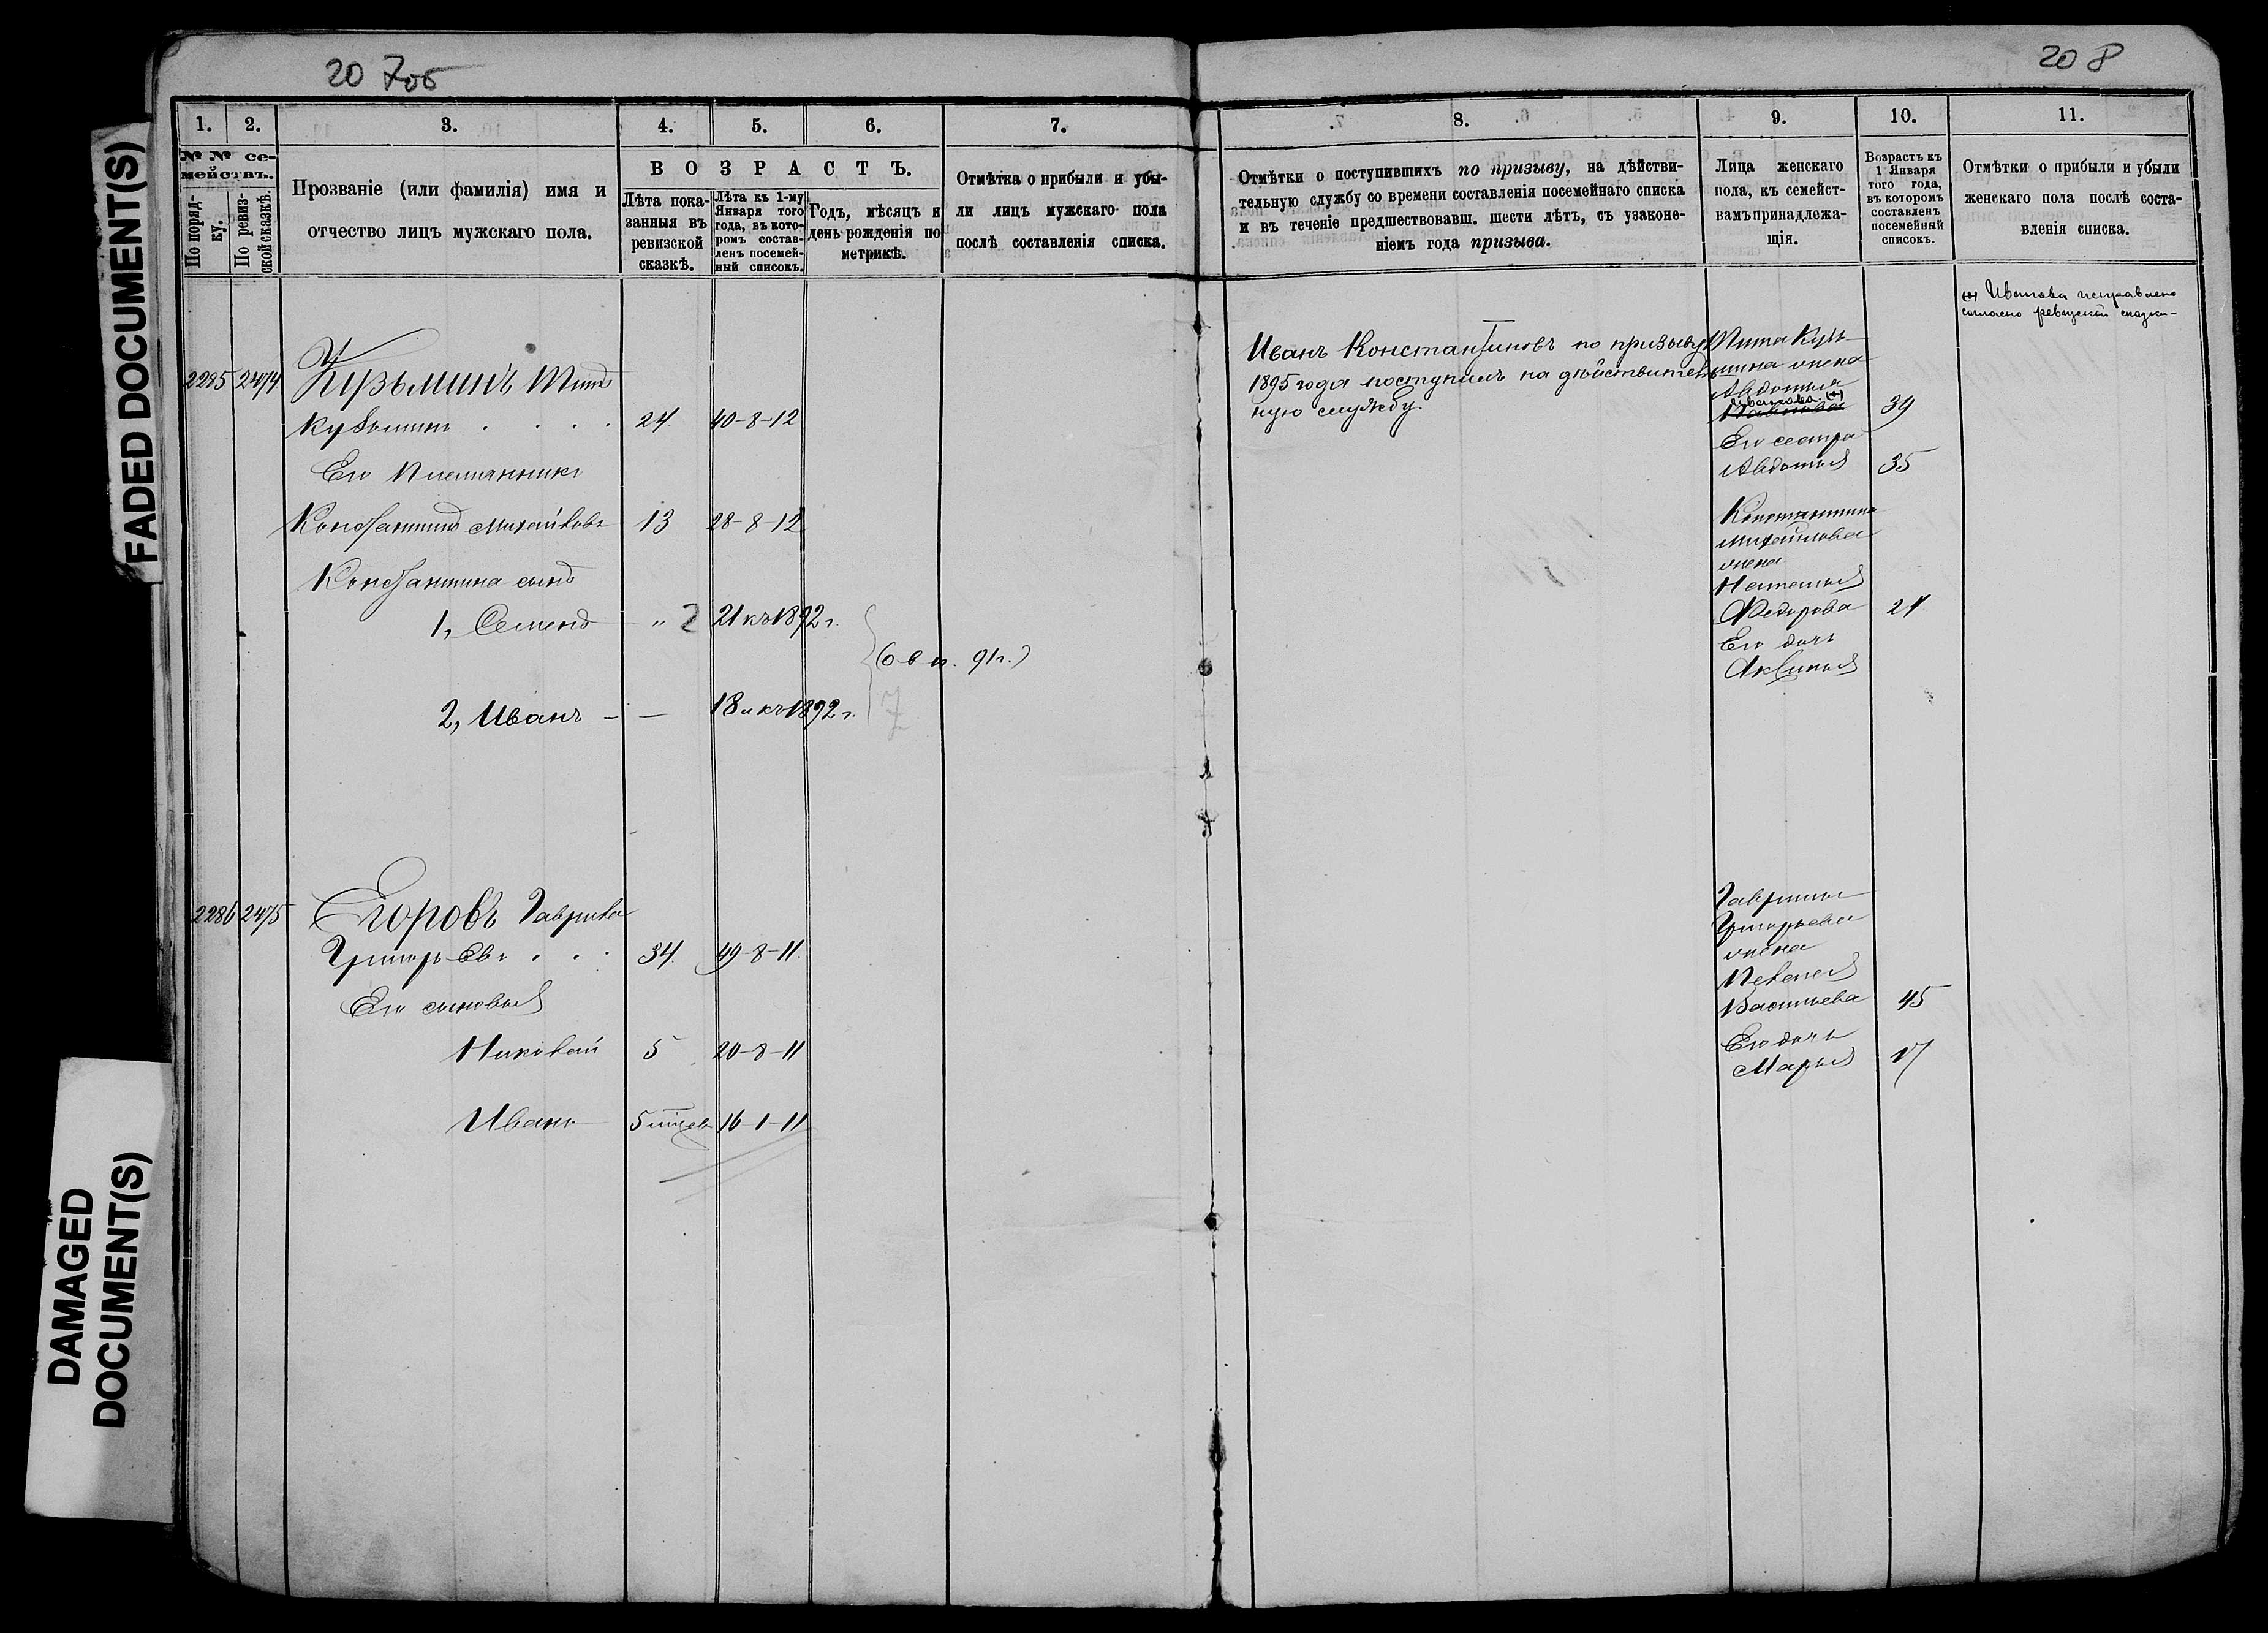 20 7об
208
FADED DOCUMENT(S)
DAMAGED
DOCUMENT(S)
1.
2.
3.
4.
5.
6.
7.
№ № се-
мействъ.
По поряд-
ку.
По ревиз-
ской сказкѣ.
Прозваніе (или фамилія) имя и
отчество лицъ мужскаго пола.
ВОЗРАСТЪ.
Лѣта пока-
занныя въ
ревизской
сказкѣ.
Лѣта къ 1-му
Января того
года, въ кото-
ромъ состав-
ленъ посемей-
ный списокъ.
Годъ, мѣсяцъ и
день рожденія по
метрикѣ.
Отмѣтка о прибыли и убы-
ли лицъ мужскаго пола
послѣ составленія списка.
2285 2474 Кузьминъ Титъ
Кузьминъ . . . . 24. 40-8-12
Его Племянникъ
Константинъ Михайловъ 13 28-8-12
Константина сынъ
1, Семенъ " 2 21 къ 1892 г.
(о в п. 91 г.)
2, Иванъ - — 18 и къ 1892 г.
2286 2475 Егоровъ Гаврила
Григорьевъ . . . 34. 49-8-11.
Его сыновья
Николай 5 20-8-11
Иванъ 5 мѣсев 16-1-11
8.
9.
10.
11.
Отмѣтки о поступившихъ по призыву, на дѣйстви-
тельную службу со времени составленія посемейнаго списка
и въ теченіе предшествовавш. шести лѣтъ, съ узаконе-
ніемъ года призыва.
Лица женскаго
пола, къ семейст-
вамъ принадлежа-
щія.
Возрастъ къ
1 Января
того года,
въ которомъ
составленъ
посемейный
списокъ.
Отмѣтки о прибыли и убыли
женскаго пола послѣ соста-
вленія списка.
Иванъ Константиновъ по призыву
1895 года поступилъ на дѣйствитель
ную службу.
Тита Кузь-
мина жена
Авдотья
Иванова (+)
39
Его сестра
Авдотья 35
Константина
Михайлова
жена
Наталья
Федорова 24
Его дочь
Аксинья
(+) Иванова исправлено
согласно ревизской сказки-
Гаврилы
Григорьева
жена
Пелагея
Васильева 45
Его дочь
Марья 17